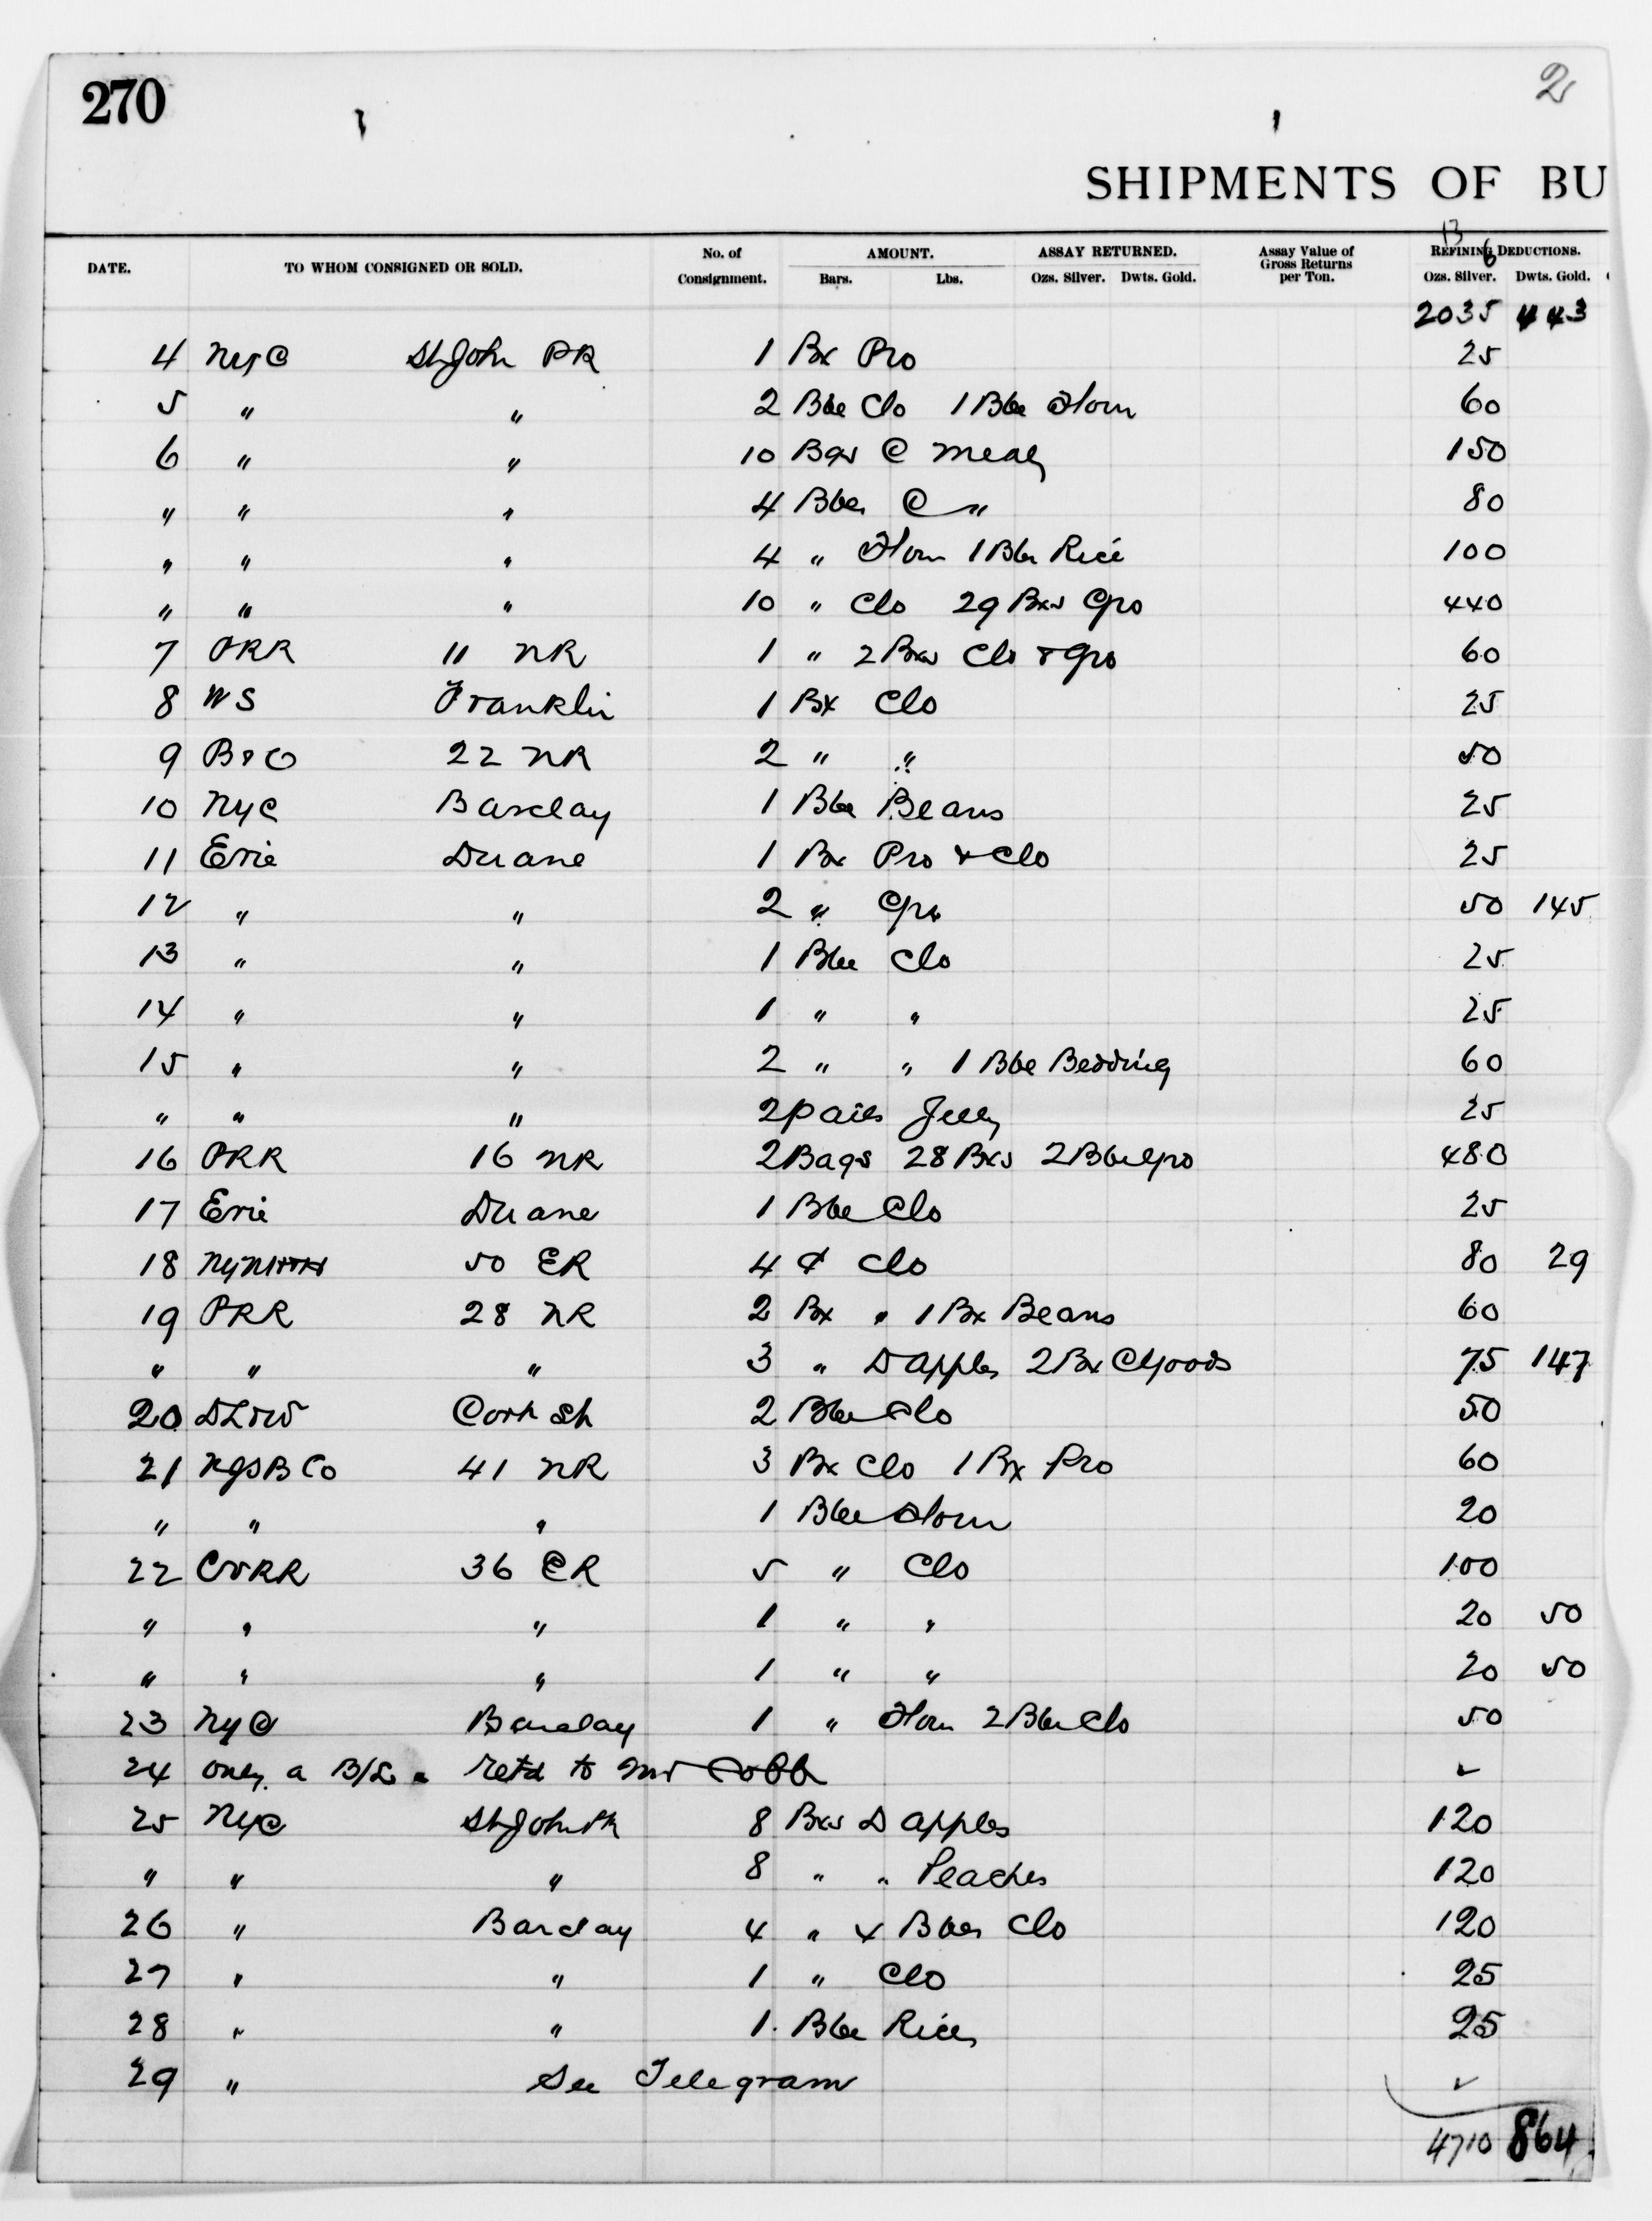 270
2
SHIPMENTS OF BU
13
6
DATE. TO WHOM CONSIGNED OR SOLD. No. of Consignment. AMOUNT. Bars. Lbs. ASSAY RETURNED. Ozs. Silver. Dwts. Gold. Assay Value of Gross Returns per Ton. REFINING DEDUCTIONS. Ozs. Silver. Dwts. Gold.
2035 443
4 NYC St John PK 1 Bx Pro 25
5 " " 2 Bbl Clo 1 Bbl Flour 60
6 " " 10 Bgs C Meal 150
" " " 4 Bbls C " 80
" " " 4 " Flour 1 Bbl Rice 100
" " " 10 " Clo 29 Bxs Gro 440
7 PRR 11 NR 1 " 2 Bxs Clo & Gro 60
8 WS Franklin 1 Bx Clo 25
9 B&O 22 NR 2 " " 50
10 NYC Barclay 1 Bbl Beans 25
11 Erie Duane 1 Bx Pro & Clo 25
12 " " 2 " Gro 50 145
13 " " 1 Bbl Clo 25
14 " " 1 " " 25
15 " " 2 " " 1 Bbl Bedding 60
" " " 2 pails Jelly 25
16 PRR 16 NR 2 Bags 28 Bxs 2 Bbl Gro 480
17 Erie Duane 1 Bbl Clo 25
18 NYNH&H 50 ER 4 Clo 80 29
19 PRR 28 NR 2 Bx " 1 Bx Beans 60
" " " 3 " D apples 2 Bx C Goods 75 147
20 DL&W Cort St 2 Bbl Clo 50
21 NJSB Co 41 NR 3 Bx Clo 1 Bx Pro 60
" " " 1 Bbl Flour 20
22 CVRR 36 ER 5 " Clo 100
" " " 1 " " 20 50
" " " 1 " " 20 50
23 NYC Barclay 1 " Flour 2 Bbl Clo 50
24 only a B/L " retd to Mr Cobb ✓
25 NYC St John Pk 8 Bxs D apples 120
" " " 8 " " Peaches 120
26 " Barclay 4 " 4 Bbls Clo 120
27 " " 1 " Clo 25
28 " " 1 Bbl Rice 25
29 " See Telegram ✓
4710 864